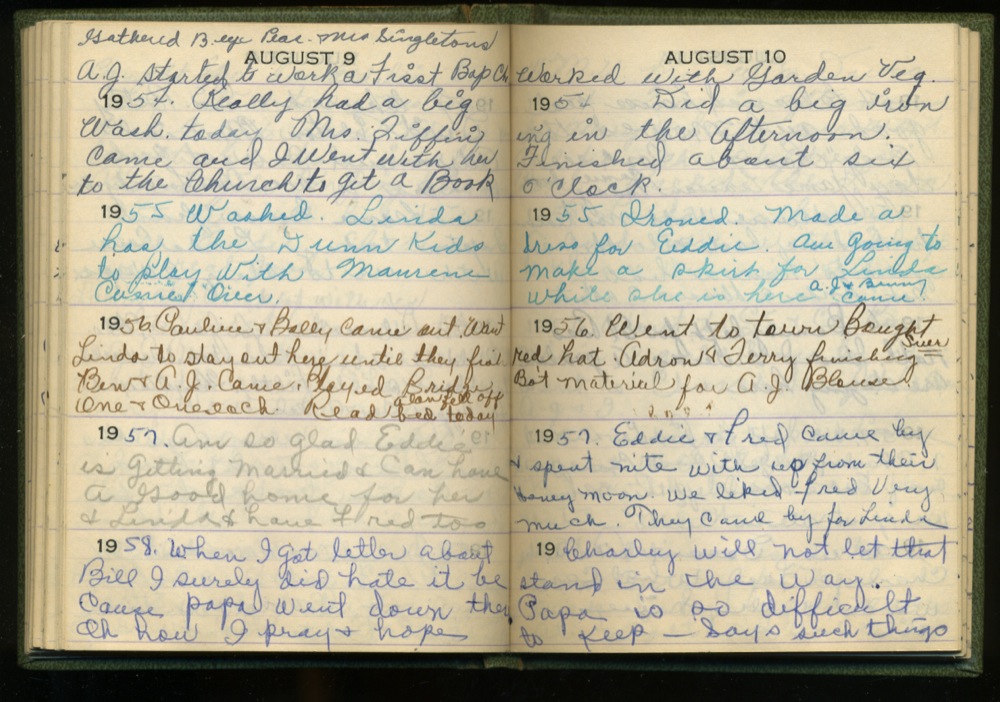 Gathered B. eye Peas. Mrs Singletons
AUGUST 9
A.J. started to work a First Bap Ch
1954. Really had a big
Wash. today Mrs. Tiffin
came and I went with her
to the Church to get a Book
1955 Washed. Linda
has the Dunn Kids
to play with Maurene
Comes Over.
1956. Pauline & Bobby came out. Want
Linda to stay out here until they
Ben & A.J. Came. Played Bridge
One & One each. Read fell off
bed today
1957. Am so glad Eddie
is Getting Married & Can have
a Good home for her
& Linda & have Fred too
1958. When I got letter about
Bill I surely did hate it be
Cause papa went down there
Oh how I pray & hope
AUGUST 10
Worked with Garden Veg.
1954 Did a big iron
ing in the Afternoon.
Finished about six
o'clock.
1955 Ironed. Made a
dress for Eddie. Am going to
make a skirt for Linda
while she is here A.J. & Benny
came.
1956. Went to town Bought
red hat. Adron & Terry finishing
Bot material for A.J. Blouse.
1957. Eddie & Fred came by
& spent nite with us from their
Honey moon. We liked Fred Very
much. They came by for Linda
19 Charley will not let that
stand in the way.
Papa is so difficult
to keep - Says such things